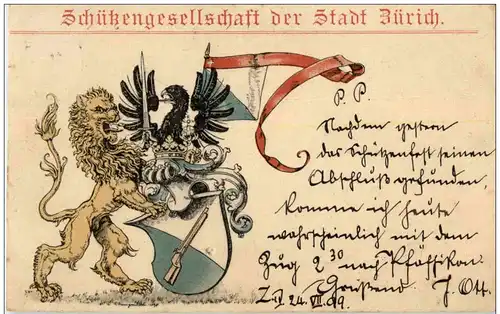 Schützengesellschaft der Stadt Zürich.
P. P.
Nachdem gestern
das Schützenfest seinen
Abschluß gefunden,
komme ich heute
wahrscheinlich mit dem
Zug 2 30 nach Pfäffikon.
Grüßend J. Ott.
24. VII. 99.